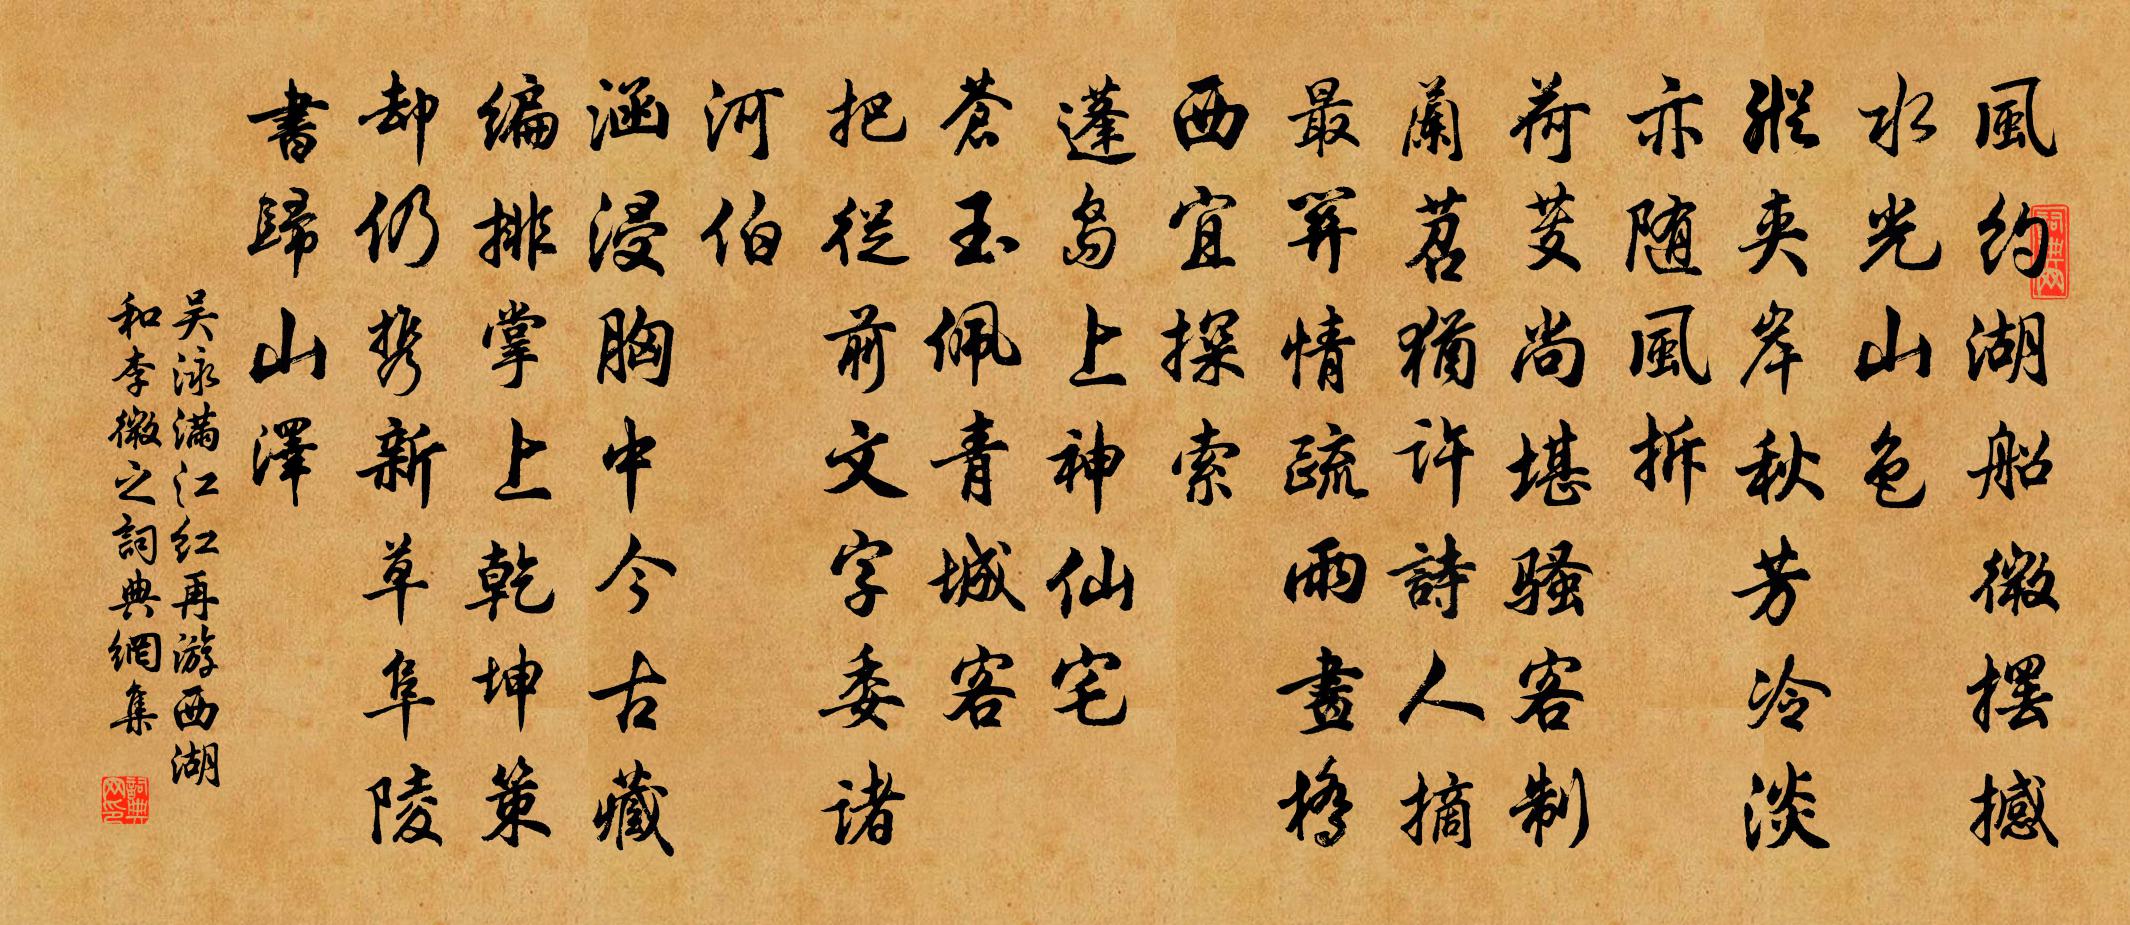 風約湖船微擺撼
水光山色
縱夾岸秋芳冷淡
亦随風拆
荷芰尚堪骚客制
蘭苕猶许詩人摘
最关情疏雨畫橋
西宜探索
蓬島上神仙宅
蒼玉佩青城客
把從前文字委诸
河伯
涵浸胸中今古藏
编排掌上乾坤策
却仍携新草阜陵
書歸山澤
吴泳满江红再游西湖
和李微之詞典網集
詞典网
詞典网印